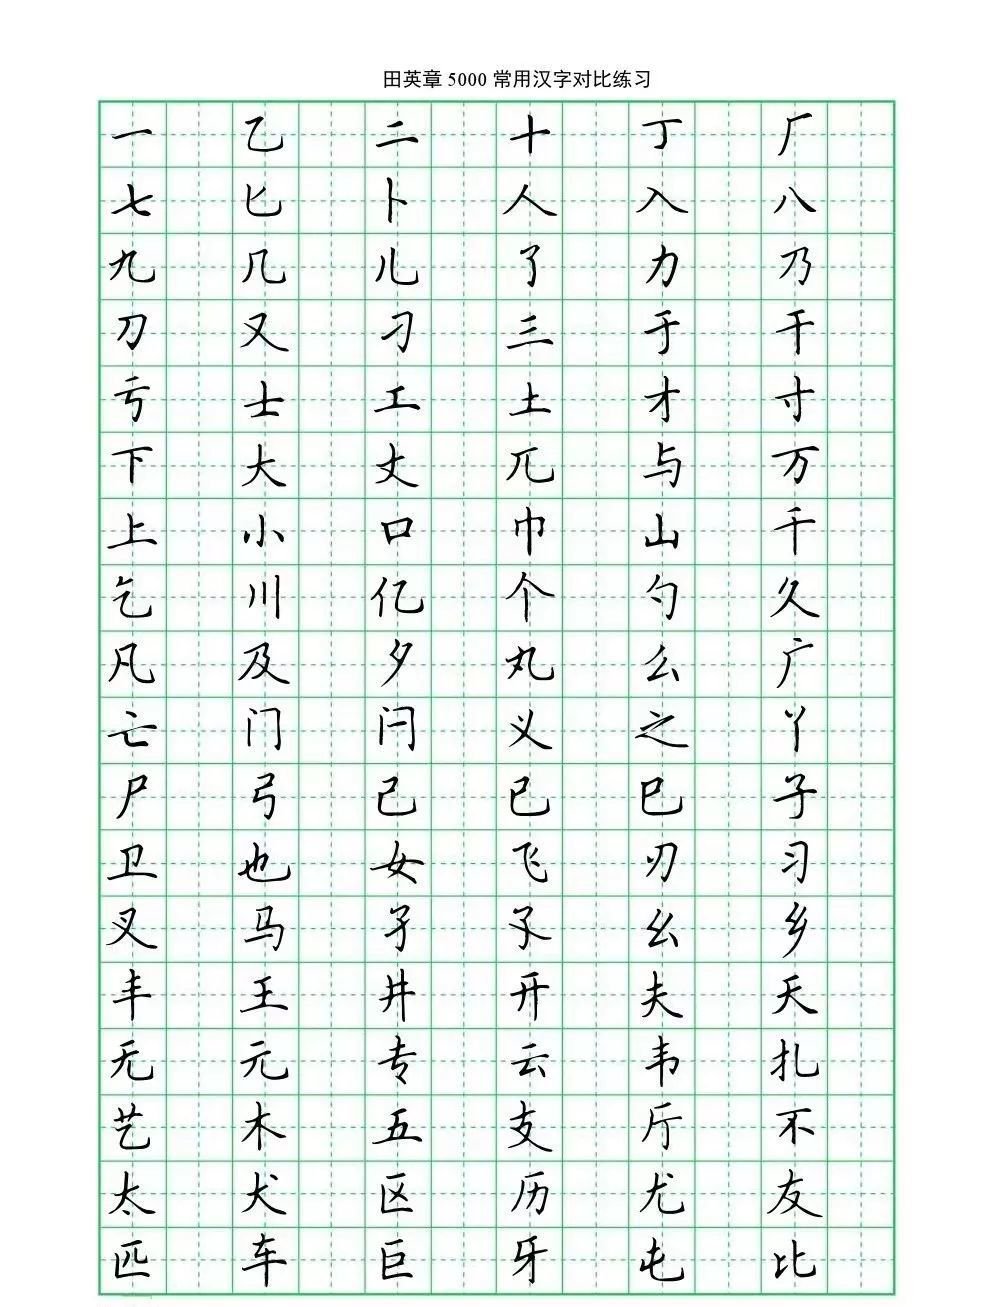 田英章 5000 常用汉字对比练习
一 乙 二 十 丁 厂
七 匕 卜 人 入 八
九 几 儿 了 力 乃
刀 又 刁 三 于 干
亏 士 工 土 才 寸
下 大 丈 兀 与 万
上 小 口 巾 山 千
乞 川 亿 个 勺 久
凡 及 夕 丸 么 广
亡 门 闩 义 之 丫
尸 弓 己 已 巳 子
卫 也 女 飞 刃 习
叉 马 矛 孓 幺 乡
丰 王 井 开 夫 天
无 元 专 云 韦 扎
艺 木 五 支 厅 不
太 犬 区 历 尤 友
匹 车 巨 牙 屯 比